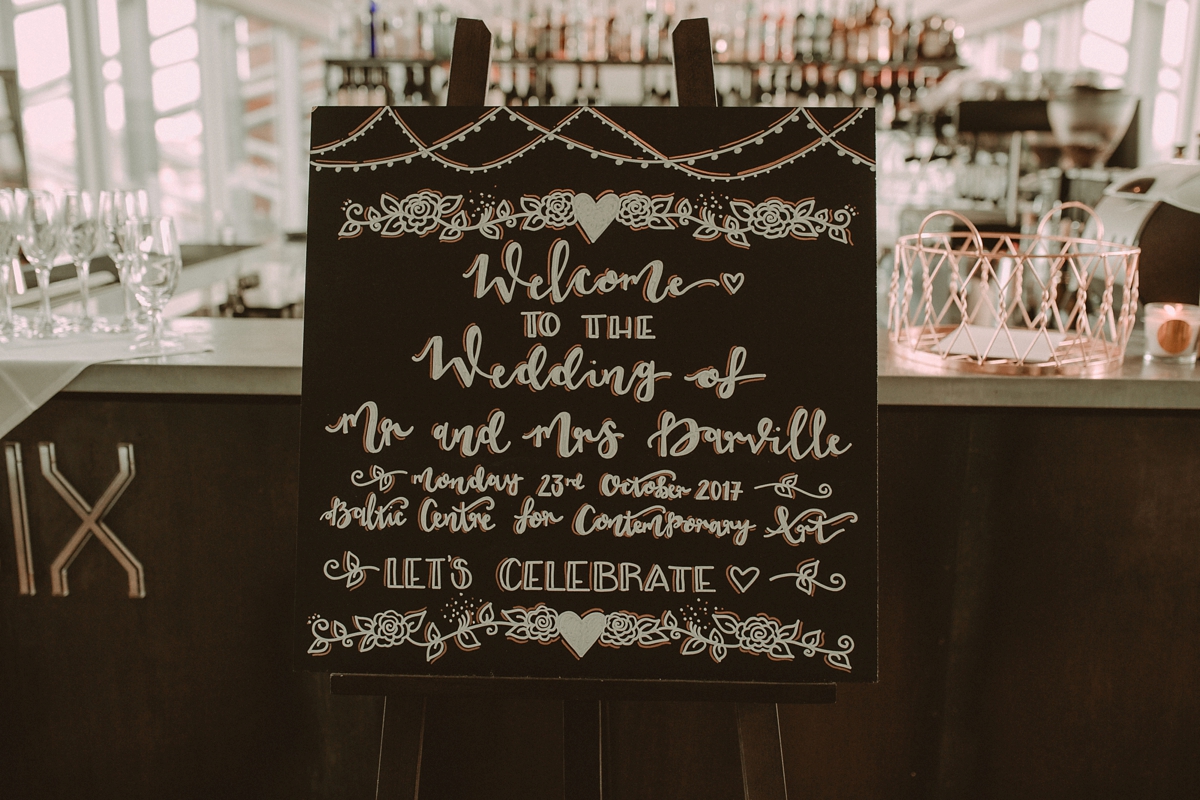 Welcome
TO THE
Wedding of
Mr and Mrs Darville
Monday 23rd October 2017
Baltic Centre for Contemporary Art
LET'S CELEBRATE
IX